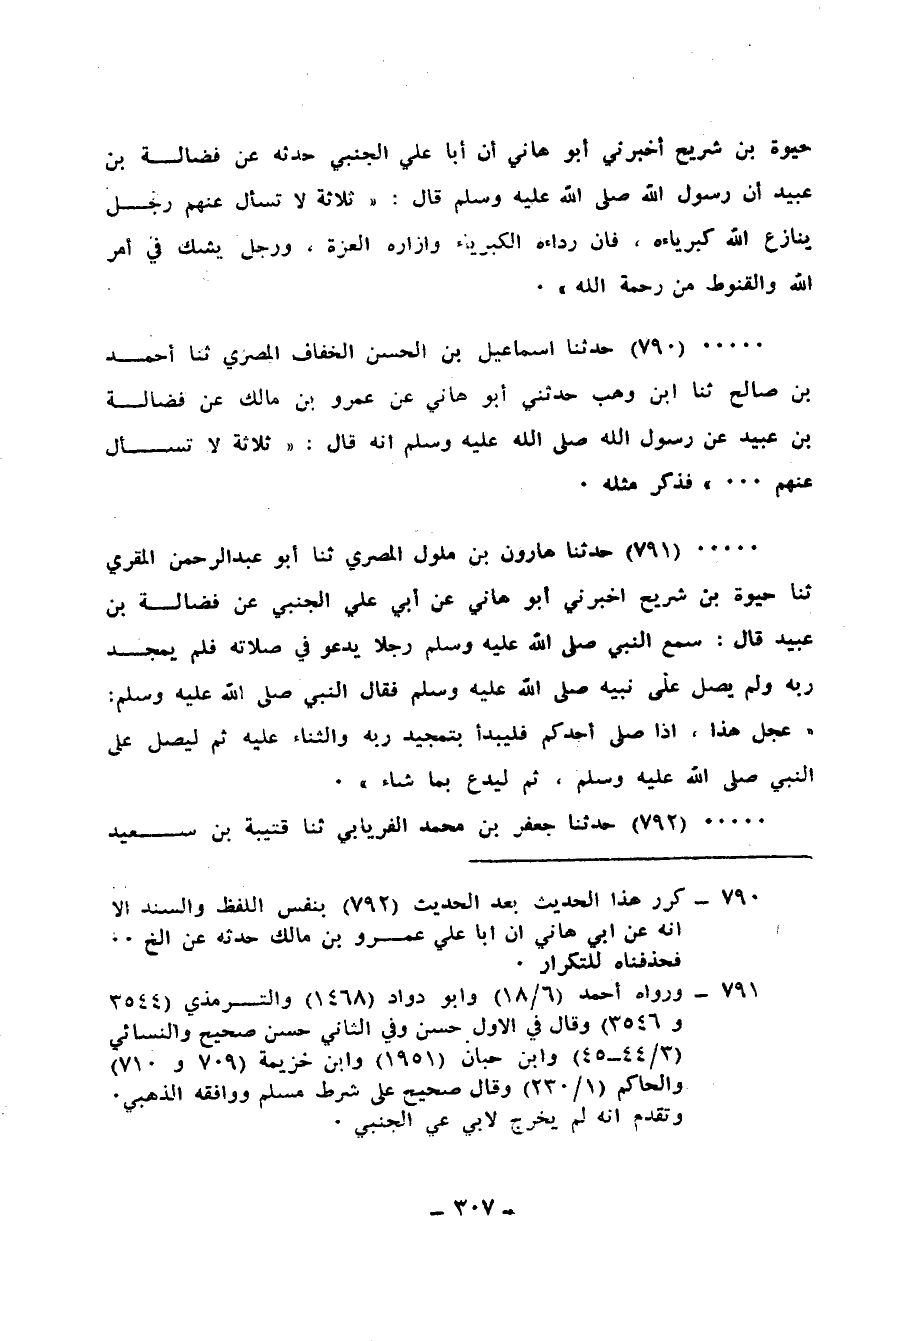 حيوة بن شريح أخبرني أبو هاني أن أبا علي الجنبي حدثه عن فضالة بن
عبيد أن رسول الله صلى الله عليه وسلم قال : « ثلاثة لا تسأل عنهم رجل
ينازع الله كبرياءه ، فان رداءه الكبرياء وازاره العزة ، ورجل يشك في أمر
الله والقنوط من رحمة الله » ٠
٠٠٠٠٠ (٧٩٠) حدثنا اسماعيل بن الحسن الخفاف المصري ثنا أحمد
بن صالح ثنا ابن وهب حدثني أبو هاني عن عمرو بن مالك عن فضالة
بن عبيد عن رسول الله صلى الله عليه وسلم انه قال : « ثلاثة لا تسأل
عنهم ٠٠٠ » فذكر مثله ٠
٠٠٠٠٠ (٧٩١) حدثنا هارون بن ملول المصري ثنا أبو عبدالرحمن المقري
ثنا حيوة بن شريح اخبرني أبو هاني عن أبي علي الجنبي عن فضالة بن
عبيد قال : سمع النبي صلى الله عليه وسلم رجلا يدعو في صلاته فلم يمجد
ربه ولم يصل على نبيه صلى الله عليه وسلم فقال النبي صلى الله عليه وسلم:
« عجل هذا ، اذا صلى أحدكم فليبدأ بتمجيد ربه والثناء عليه ثم ليصل على
النبي صلى الله عليه وسلم ، ثم ليدع بما شاء » ٠
٠٠٠٠٠ (٧٩٢) حدثنا جعفر بن محمد الفريابي ثنا قتيبة بن سعيد
٧٩٠ ــ كرر هذا الحديث بعد الحديث (٧٩٢) بنفس اللفظ والسند الا
انه عن ابي هاني ان ابا علي عمرو بن مالك حدثه عن الخ ٠٠
فحذفناه للتكرار ٠
٧٩١ ــ ورواه أحمد (١٨/٦) وابو دواد (١٤٦٨) والترمذي (٣٥٤٤
و ٣٥٤٦) وقال في الاول حسن وفي الثاني حسن صحيح والنسائي
(٤٤/٣-٤٥) وابن حبان (١٩٥١) وابن خزيمة (٧٠٩ و ٧١٠)
والحاكم (٢٣٠/١) وقال صحيح على شرط مسلم ووافقه الذهبي٠
وتقدم انه لم يخرج لابي عي الجنبي ٠
ــ ٣٠٧ ــ